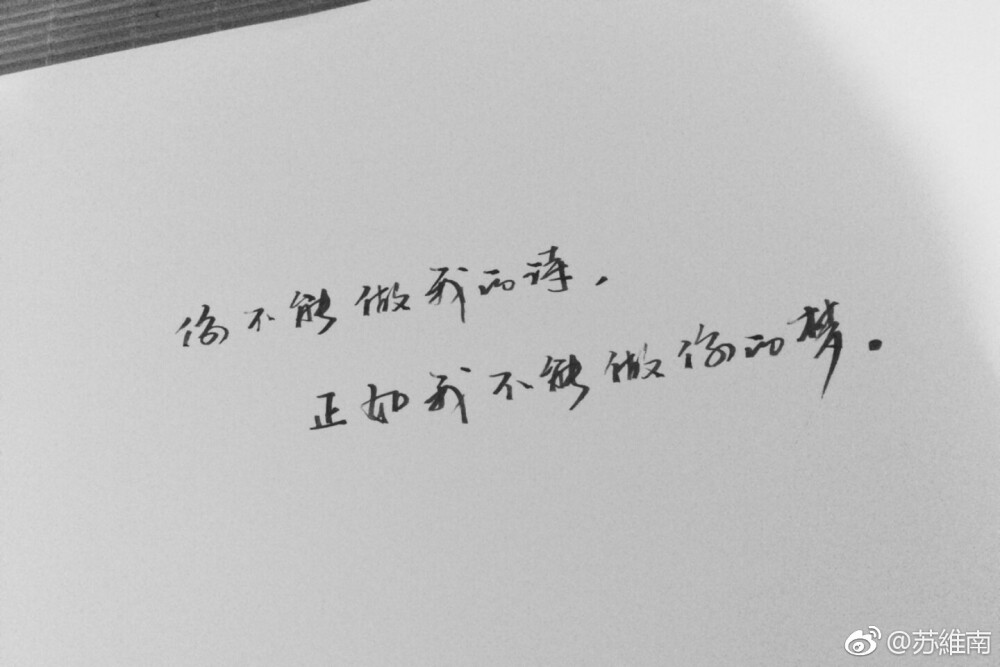 你不能做我的诗，
正如我不能做你的梦。
@苏維南